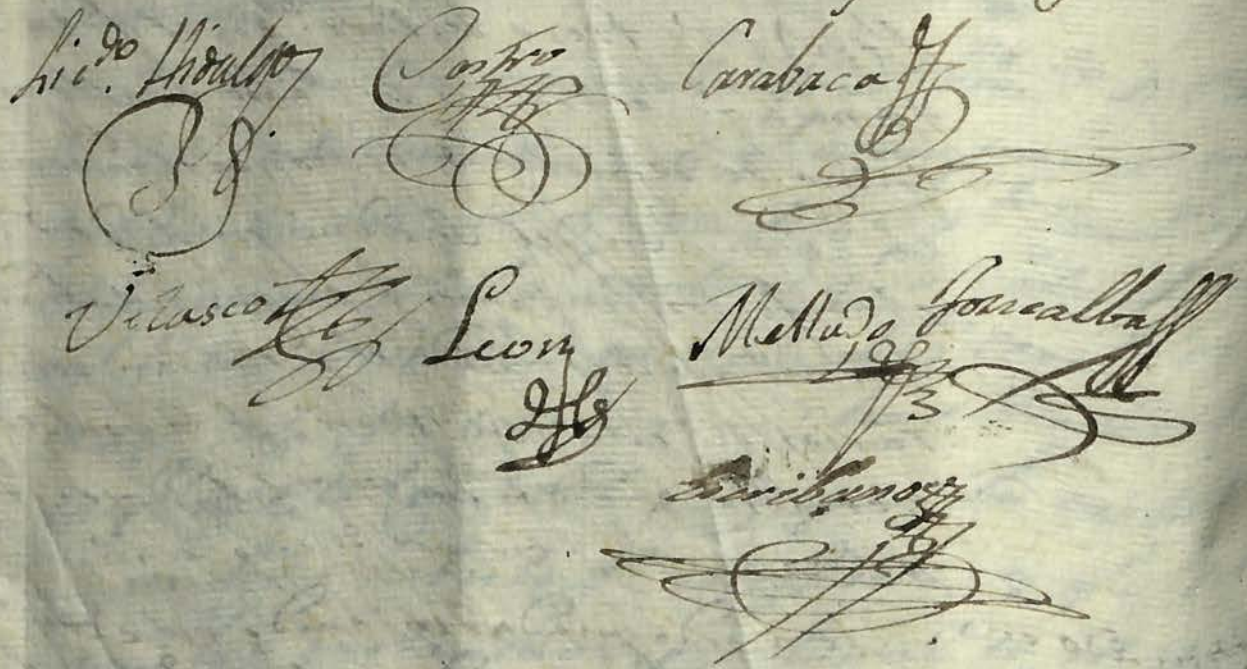 Licdo. Hidalgo Castro Carabaca
Velasco Leon Mellado Torrealba
Escribano